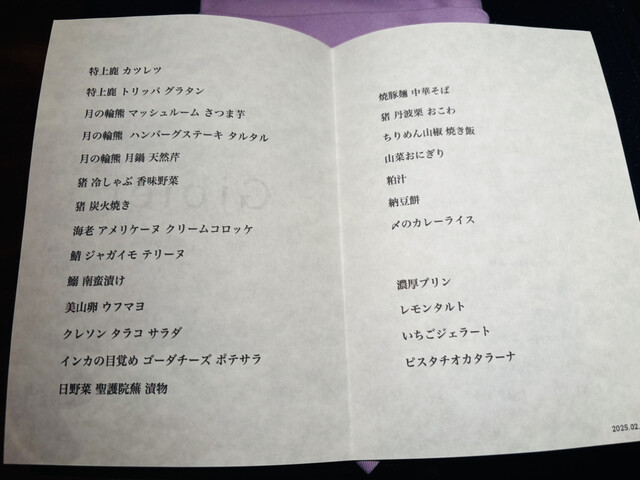 特上鹿 カツレツ
特上鹿 トリッパ グラタン
月の輪熊 マッシュルーム さつま芋
月の輪熊 ハンバーグステーキ タルタル
月の輪熊 月鍋 天然芹
猪 冷しゃぶ 香味野菜
猪 炭火焼き
海老 アメリケーヌ クリームコロッケ
鯖 ジャガイモ テリーヌ
鰯 南蛮漬け
美山卵 ウフマヨ
クレソン タラコ サラダ
インカの目覚め ゴーダチーズ ポテサラ
日野菜 聖護院蕪 漬物
焼豚麺 中華そば
猪 丹波栗 おこわ
ちりめん山椒 焼き飯
山菜おにぎり
粕汁
納豆餅
〆のカレーライス
濃厚プリン
レモンタルト
いちごジェラート
ピスタチオカタラーナ
2025.02.